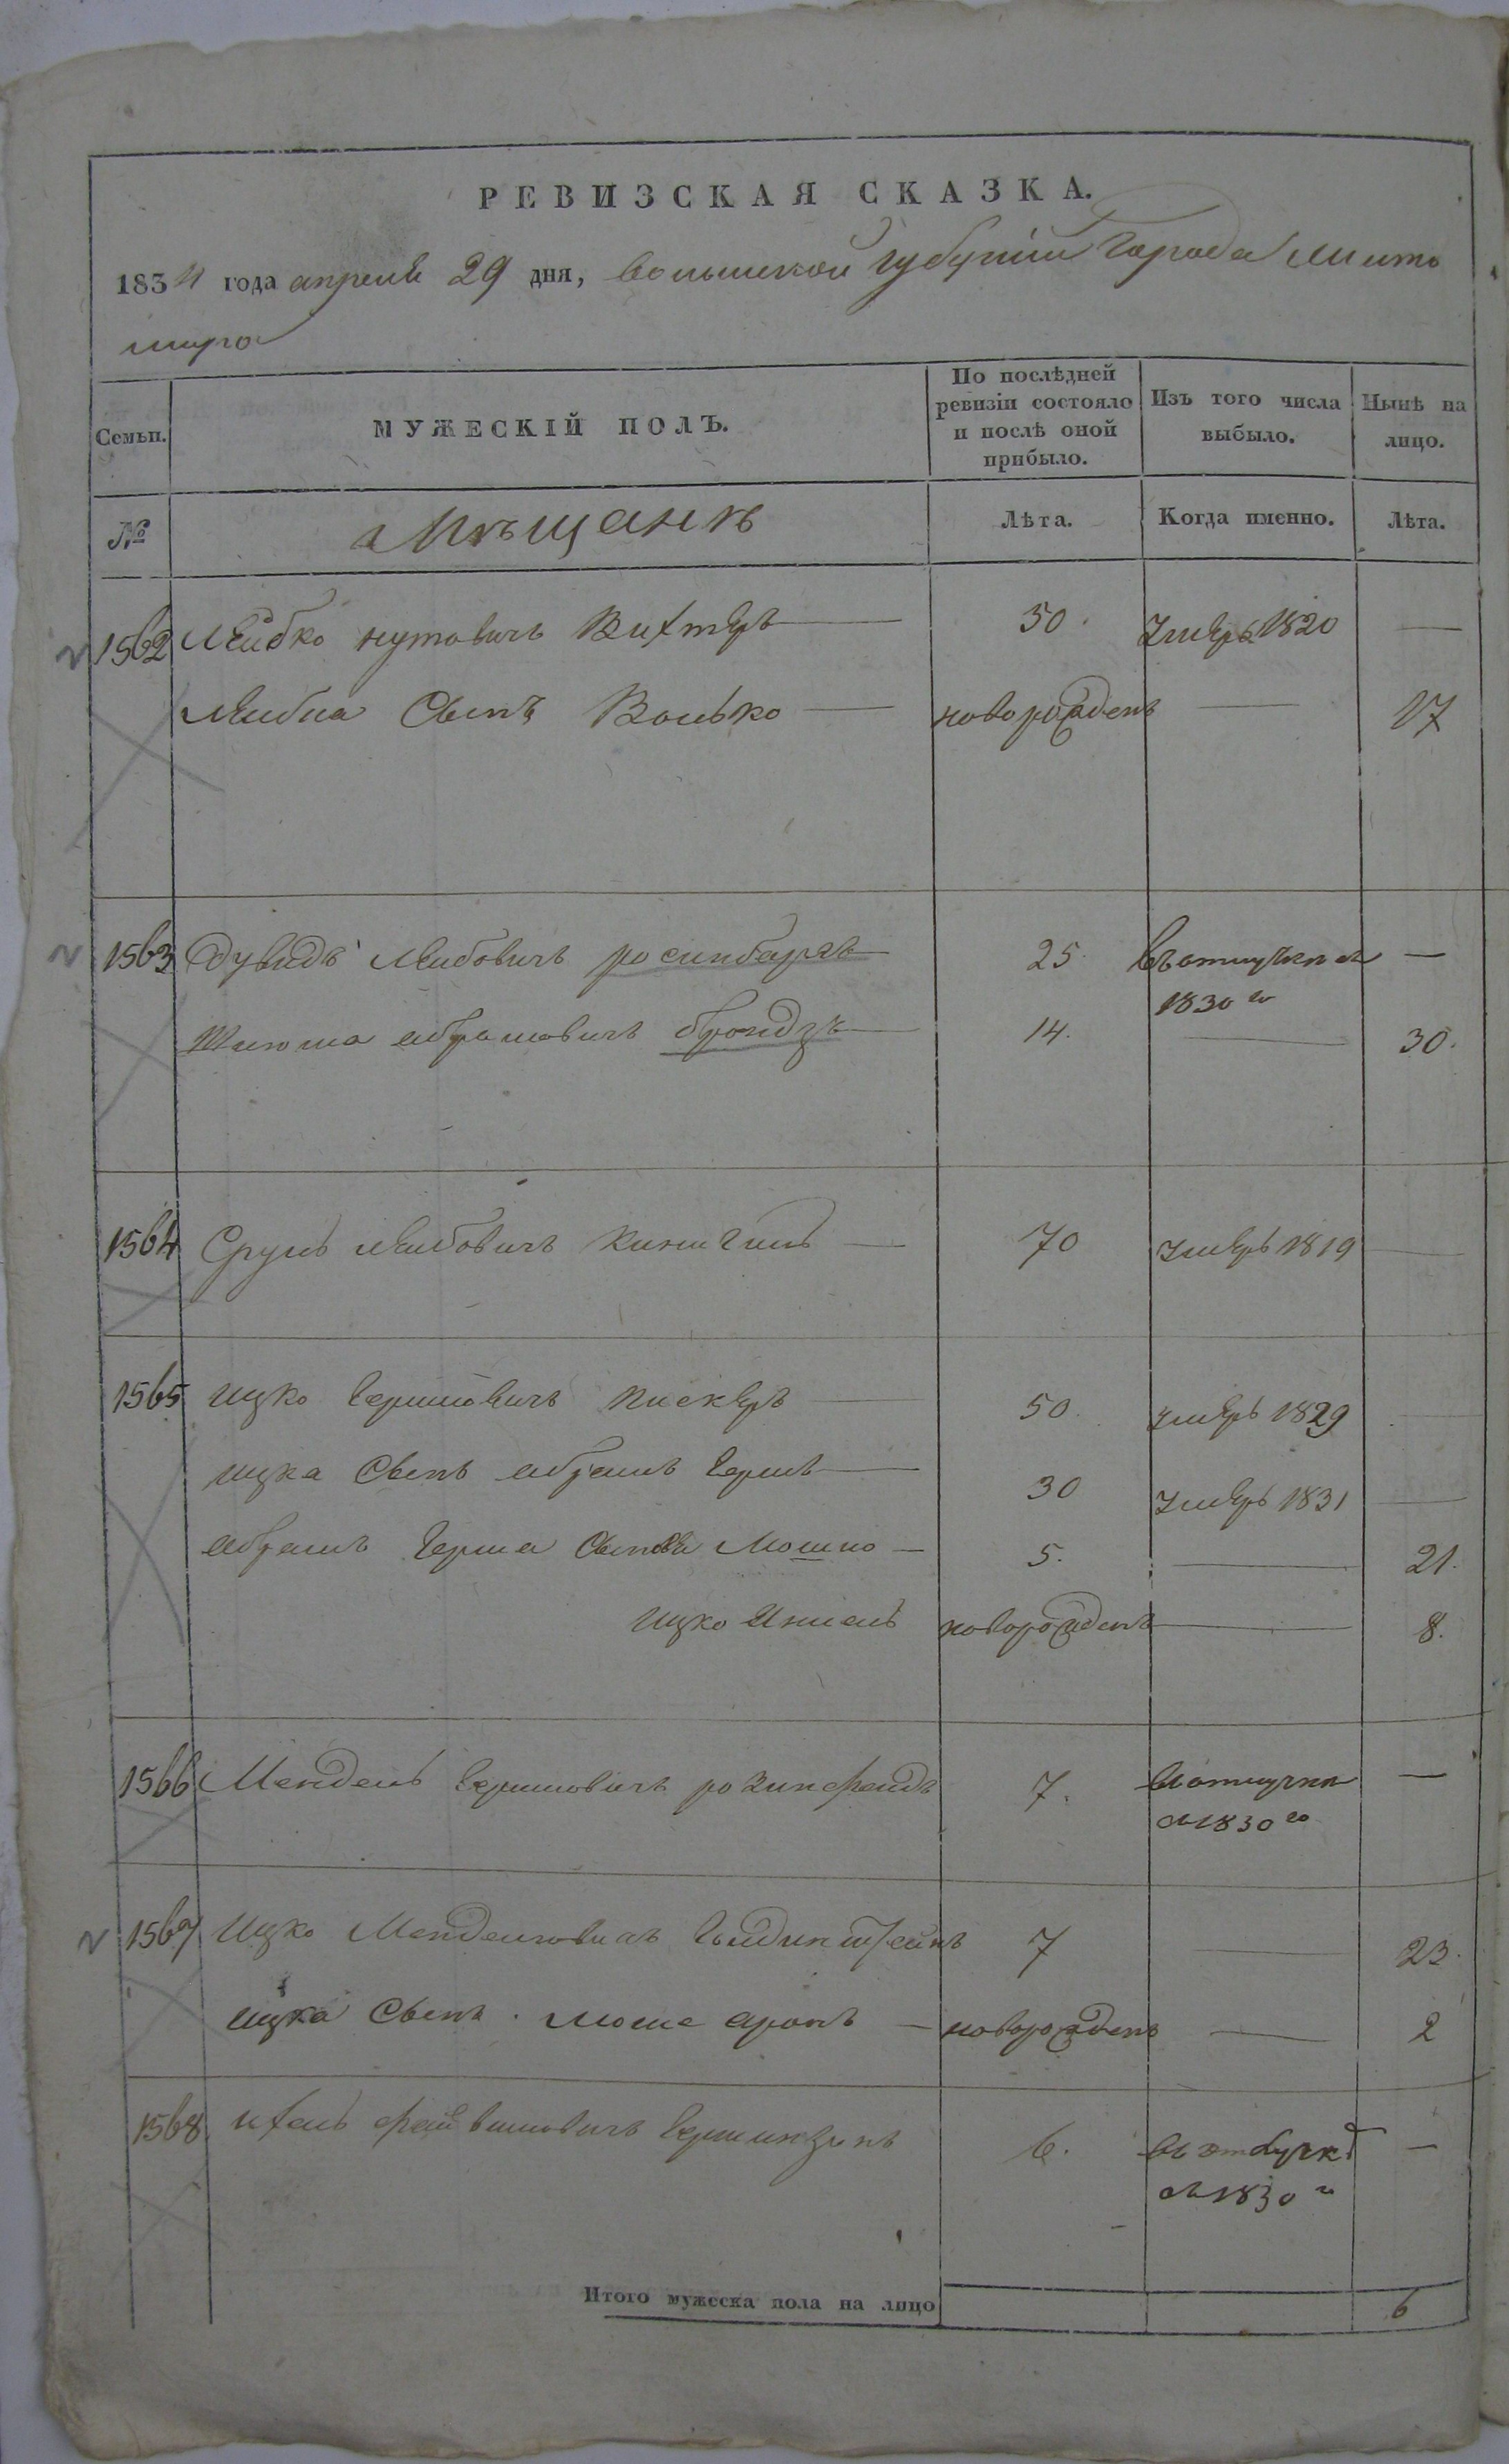 РЕВИЗСКАЯ СКАЗКА.
1834 года апреля 29 дня, Волынской губернии Города Жито
мира
Семьи. МУЖЕСКІЙ ПОЛЪ. По послѣдней ревизіи состояло и послѣ оной прибыло. Изъ того числа выбыло. Нынѣ на лицо.
№ Мѣщанъ Лѣта. Когда именно. Лѣта.
1562 Лейбко нутовичъ Вихтеръ — 50. Умеръ 1820 —
Лейбка Сынъ Волько — новорожденъ — 17
1563 Дувидъ Лейбовичъ росинбаргъ — 25. въ отлучки съ —
1830 го
абрамовичъ брондзъ — 14. — 30.
1564 Сруль Лейбовичъ — 70 Умеръ 1819 —
1565 Ицко Гершковичъ Пискеръ — 50. Умеръ 1829 —
Ицка Сынъ абрамъ Гершъ — 30 Умеръ 1831 —
Абрамъ Герша Сыновья Мошко — 5. — 21.
Ицко новорожденъ — 8.
1566 Мендель Гершковичъ розинфельдъ 7. въ отлучки —
съ 1830 го
1567 Ицко Менделиовичъ Гольдинштейнъ 7 — 23.
Ицка Сынъ Моше аронъ — новорожденъ — 2
1568 Ихель Файвишовичъ 6. въ отлучки —
съ 1830 го
Итого мужеска пола на лицо 6